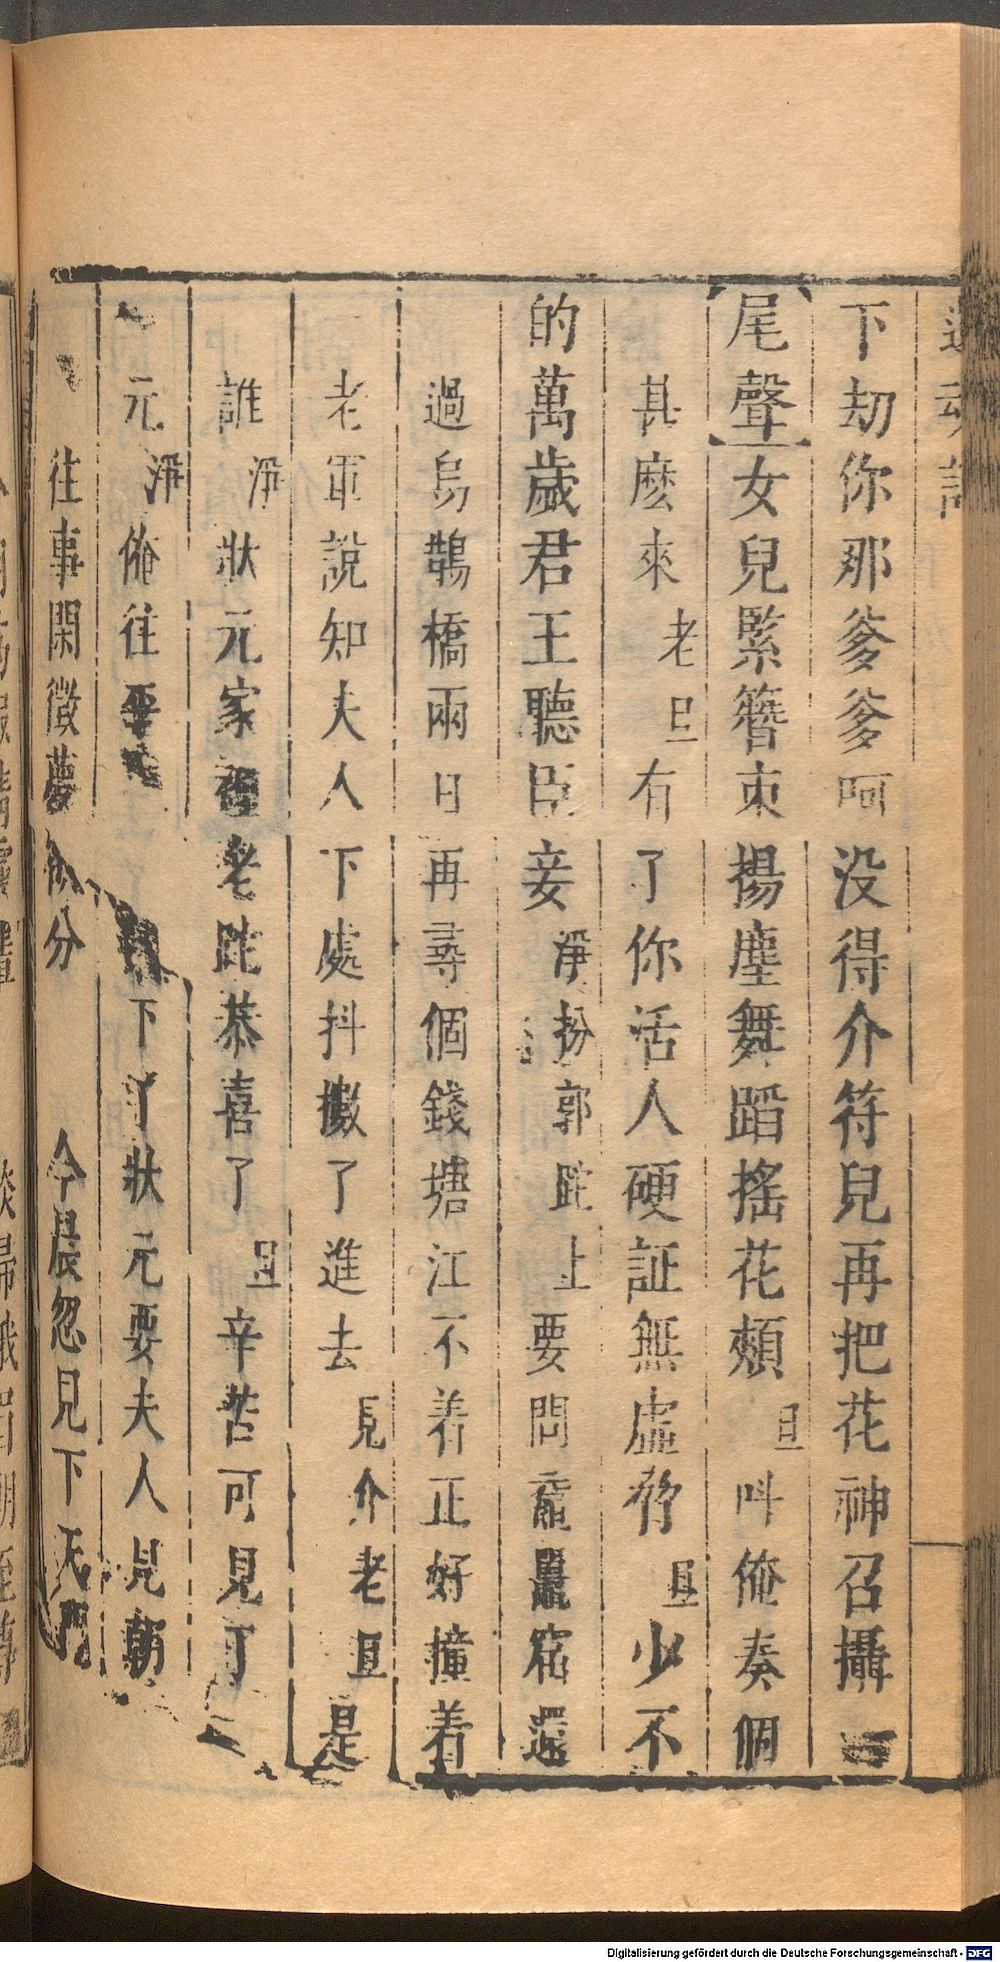 下刼你那爹爹呵没得介符兒再把花神召攝
【尾聲】女兒緊簪束揚塵舞蹈搖花頰旦呌俺奏個
甚麽來老旦有了你活人硬証無虛脅旦少不
的萬歲君王聽臣妾淨扮郭䭾上要問黿鼉窟還
過烏鵲橋兩日再尋個錢塘江不着正好撞着
老軍說知夫人下處抖擻了進去見介老旦是
誰淨狀元家裡老䭾恭喜了旦辛苦可見了
元淨俺往要下了狀元要夫人見朝
往事閑徵夢 分 今晨忽見下天門
Digitalisierung gefördert durch die Deutsche Forschungsgemeinschaft - DFG